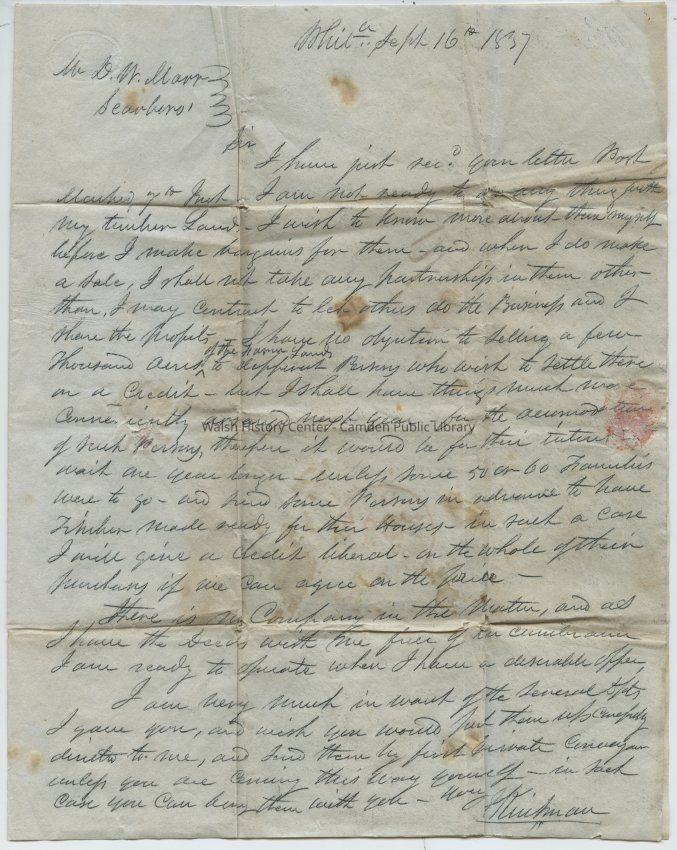 Sept 16th 1837
Mr D. W. Marr
Scarboro'
Sir
I have just recd. your letter Post
Marked Inst I am not ready to do any thing with
my timber Land - I wish to know more about them myself
before I make bargains for them - and when I do make
a sale, I shall not take any partnerships in them other
than, I may contract to let others do the Business and I
share the profits - I have no objection to selling a few
of the Farm Lands
thousand acres to different Persons who wish to settle there
on a Credit - but I shall have things much more
conveniently arranged next year for the accommodation
of such Persons, therefore it would be for their
wait one year longer - unless some 50 or 60 Families
were to go - and send some Persons in advance to have
Timber made ready for their Houses - in such a case
I will give a credit liberal - on the whole of their
purchases if we can agree on the Price -
There is no Company in this matter, and as
I have the Deeds with me free of
I am ready to operate when I have a desirable offer,
I am very much in want of the several
I gave you, and wish you would put them up carefully
directed to me, and send them by first private conveyance
unless you are coming this way yourself - in such
case you can bring them with you -
Walsh History Center - Camden Public Library